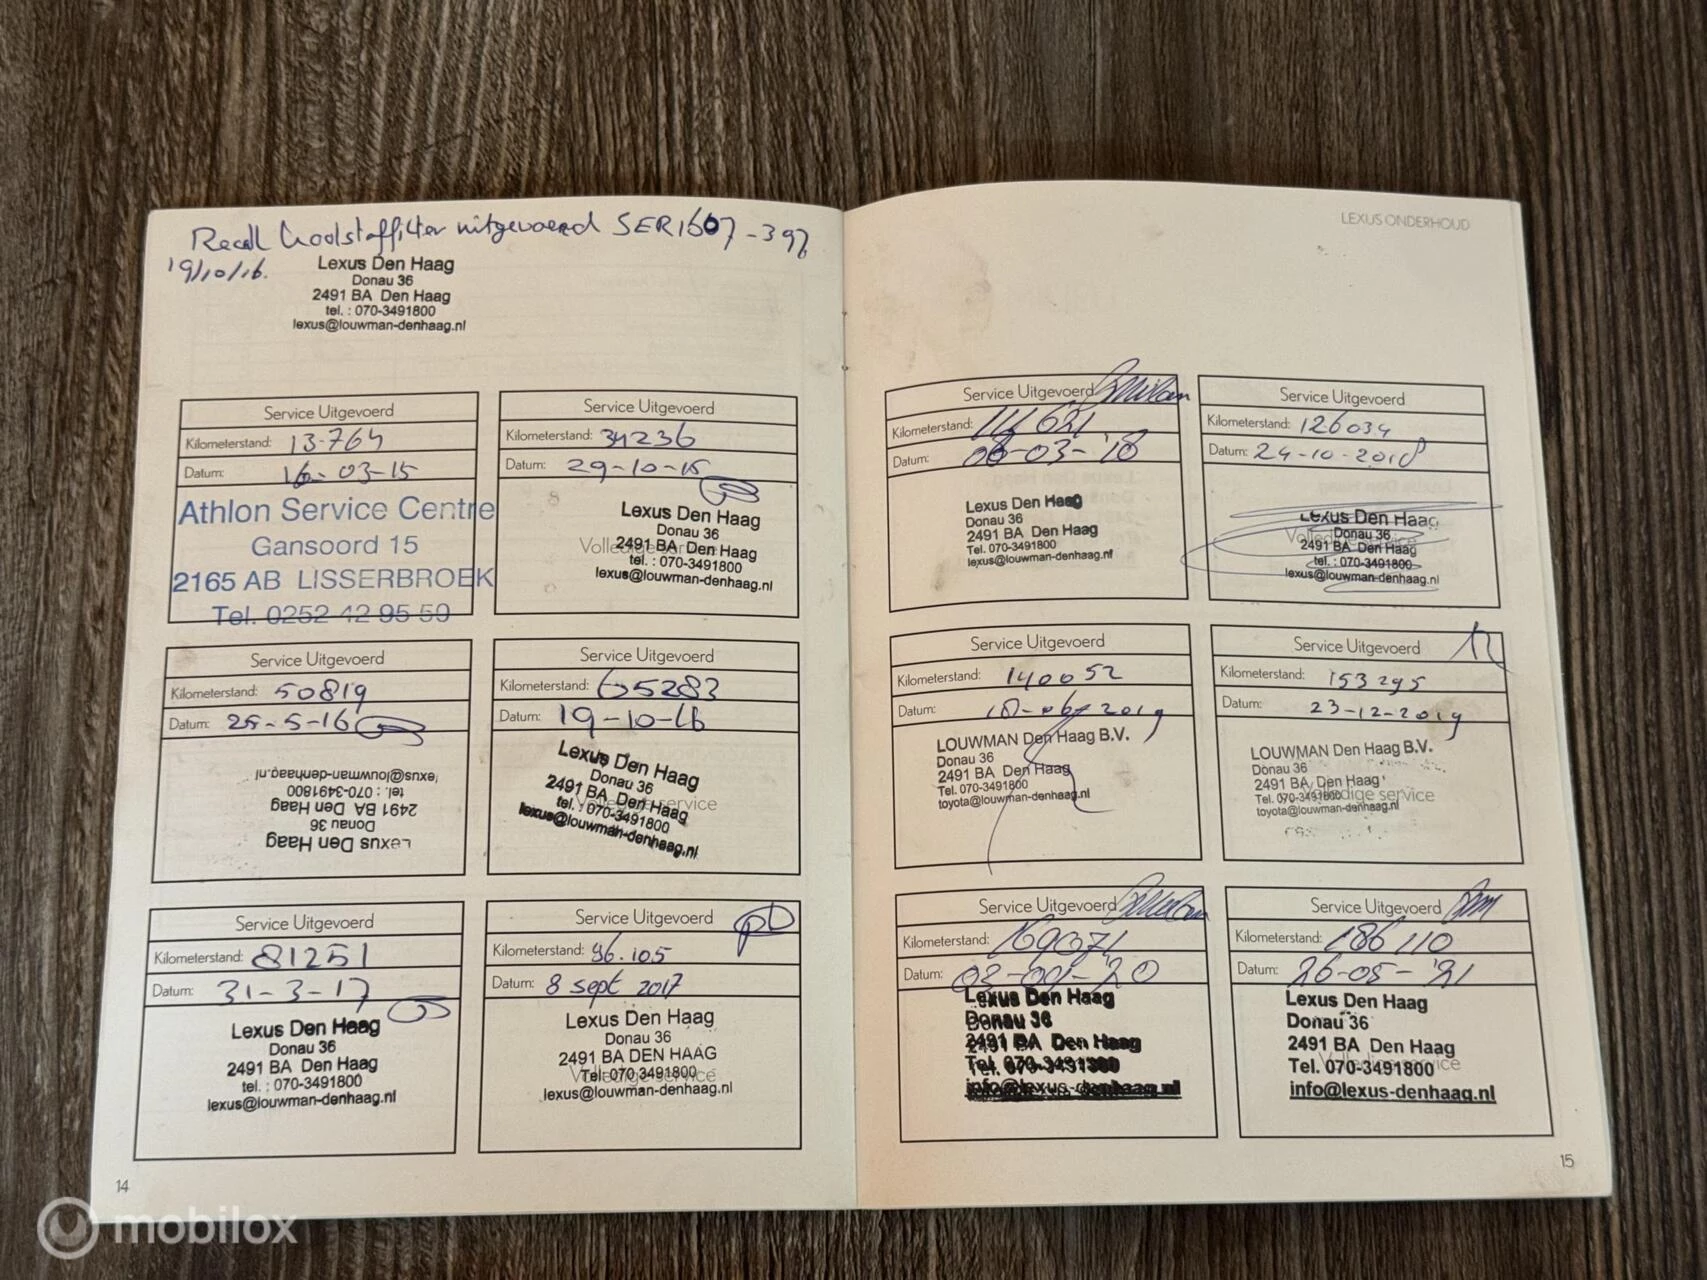 Recall koolstoffilter uitgevoerd SER1607-397
19/10/16.
Lexus Den Haag
Donau 36
2491 BA Den Haag
tel. : 070-3491800
lexus@louwman-denhaag.nl
Service Uitgevoerd
Kilometerstand: 13.764
Datum: 16-03-15
Athlon Service Centre
Gansoord 15
2165 AB LISSERBROEK
Tel. 0252 42 95 59
Service Uitgevoerd
Kilometerstand: 34236
Datum: 29-10-15
Lexus Den Haag
Donau 36
2491 BA Den Haag
Volledige service
tel. : 070-3491800
lexus@louwman-denhaag.nl
Service Uitgevoerd
Kilometerstand: 50819
Datum: 25-5-16
Lexus Den Haag
Donau 36
2491 BA Den Haag
tel. : 070-3491800
lexus@louwman-denhaag.nl
Service Uitgevoerd
Kilometerstand: 65283
Datum: 19-10-16
Lexus Den Haag
Donau 36
2491 BA Den Haag
Volledige service
tel. : 070-3491800
lexus@louwman-denhaag.nl
Service Uitgevoerd
Kilometerstand: 81251
Datum: 31-3-17
Lexus Den Haag
Donau 36
2491 BA Den Haag
tel. : 070-3491800
lexus@louwman-denhaag.nl
Service Uitgevoerd
Kilometerstand: 96.105
Datum: 8 sept 2017
Lexus Den Haag
Donau 36
2491 BA DEN HAAG
Tel. 070-3491800
Volledige service
lexus@louwman-denhaag.nl
14
LEXUS ONDERHOUD
Service Uitgevoerd
Kilometerstand: 111621
Datum: 06-03-'18
Lexus Den Haag
Donau 36
2491 BA Den Haag
Tel. 070-3491800
lexus@louwman-denhaag.nl
Service Uitgevoerd
Kilometerstand: 126034
Datum: 24-10-2018
Lexus Den Haag
Donau 36
Volledige service
2491 BA Den Haag
tel. : 070-3491800
lexus@louwman-denhaag.nl
Service Uitgevoerd
Kilometerstand: 140052
Datum: 18-06-2019
LOUWMAN Den Haag B.V.
Donau 36
2491 BA Den Haag
Tel. 070-3491800
toyota@louwman-denhaag.nl
Service Uitgevoerd
Kilometerstand: 153295
Datum: 23-12-2019
LOUWMAN Den Haag B.V.
Donau 36
2491 BA Den Haag
Tel. 070-3491800
Volledige service
toyota@louwman-denhaag.nl
Service Uitgevoerd
Kilometerstand: 169071
Datum: 03-09-'20
Lexus Den Haag
Donau 36
2491 BA Den Haag
Tel. 070-3491800
info@lexus-denhaag.nl
Service Uitgevoerd
Kilometerstand: 186110
Datum: 26-05-'21
Lexus Den Haag
Donau 36
2491 BA Den Haag
Tel. 070-3491800
Volledige service
info@lexus-denhaag.nl
15
mobilox